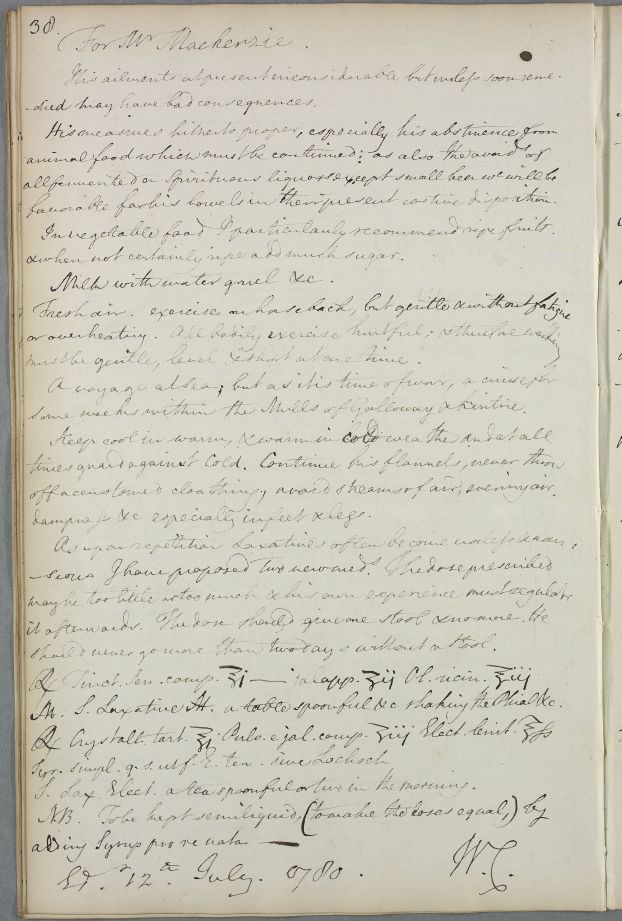 38.
For Mr Mackenzie.
His ailments at present inconsiderable but unless soon reme-
-died may have bad consequences.
His measures hitherto proper, especially his abstinence from
animal food which must be continued; as also the avoidce of
all fermented or Spirituous liquors except small beer wc will be
favorable for his bowels in their present costive disposition.
In vegetable food I particularly recommend ripe fruits.
& when not certainly ripe add much sugar.
Milk with water gruel &c.
Fresh air. exercise on horseback, but gentle & without fatigue
or overheating. All bodily exercise hurtful; & therefore walking
must be gentle, level & short at one time.
A voyage at sea; but as it is time of war, a cruise for
some weeks within the Mulls of Galloway & Kintire.
Keep cool in warm, & warm in cold weather and at all
times guard against Cold. Continue his flannels, never throw
off accustomed cloathing, avoid streams of air, evening air.
dampness &c especially in feet & legs.
As upon repetition Laxatives often become useless & nau-
-seous I have proposed two new meds. The dose prescribed
may be too little or too much & his own experience must regulate
it afterwards. The dose should give one stool & no more. He
should never go more than two days without a stool.
℞ Tinct. Sen. comp. ℥j — jalapp. ℥ij Ol. ricin. ℥iij
M. S. Laxative M. a table spoonful &c shaking the Phial &c.
℞ Crystall. tart. ℥j Pulv. e jal. comp. ℥iij Elect. lenit. ℥ſs
Syr. simpl. q. s. ut f. E. ten. sive Lochoch
S. Lax Elect. a tea spoonful or two in the morning.
NB. To be kept semiliquid, (to make the doses equal,) by
adding Syrup pro re nata —
Edr 12th July. 1780. W.C.